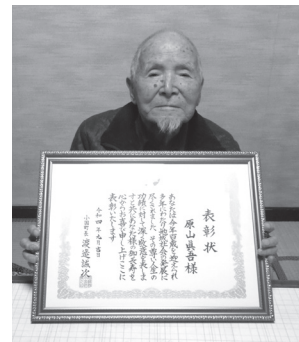 表彰状
原山眞吾様
あなたは今年百歳を迎えられ
多年にわたり地域社会の発展に
尽くされました その尊い人生の
功績に対して深く敬意を表しま
すと共にあなた様の御長寿を
心からお喜び申し上げここに
表彰いたします
令和四年九月吉日
小国町長 渡邉誠次